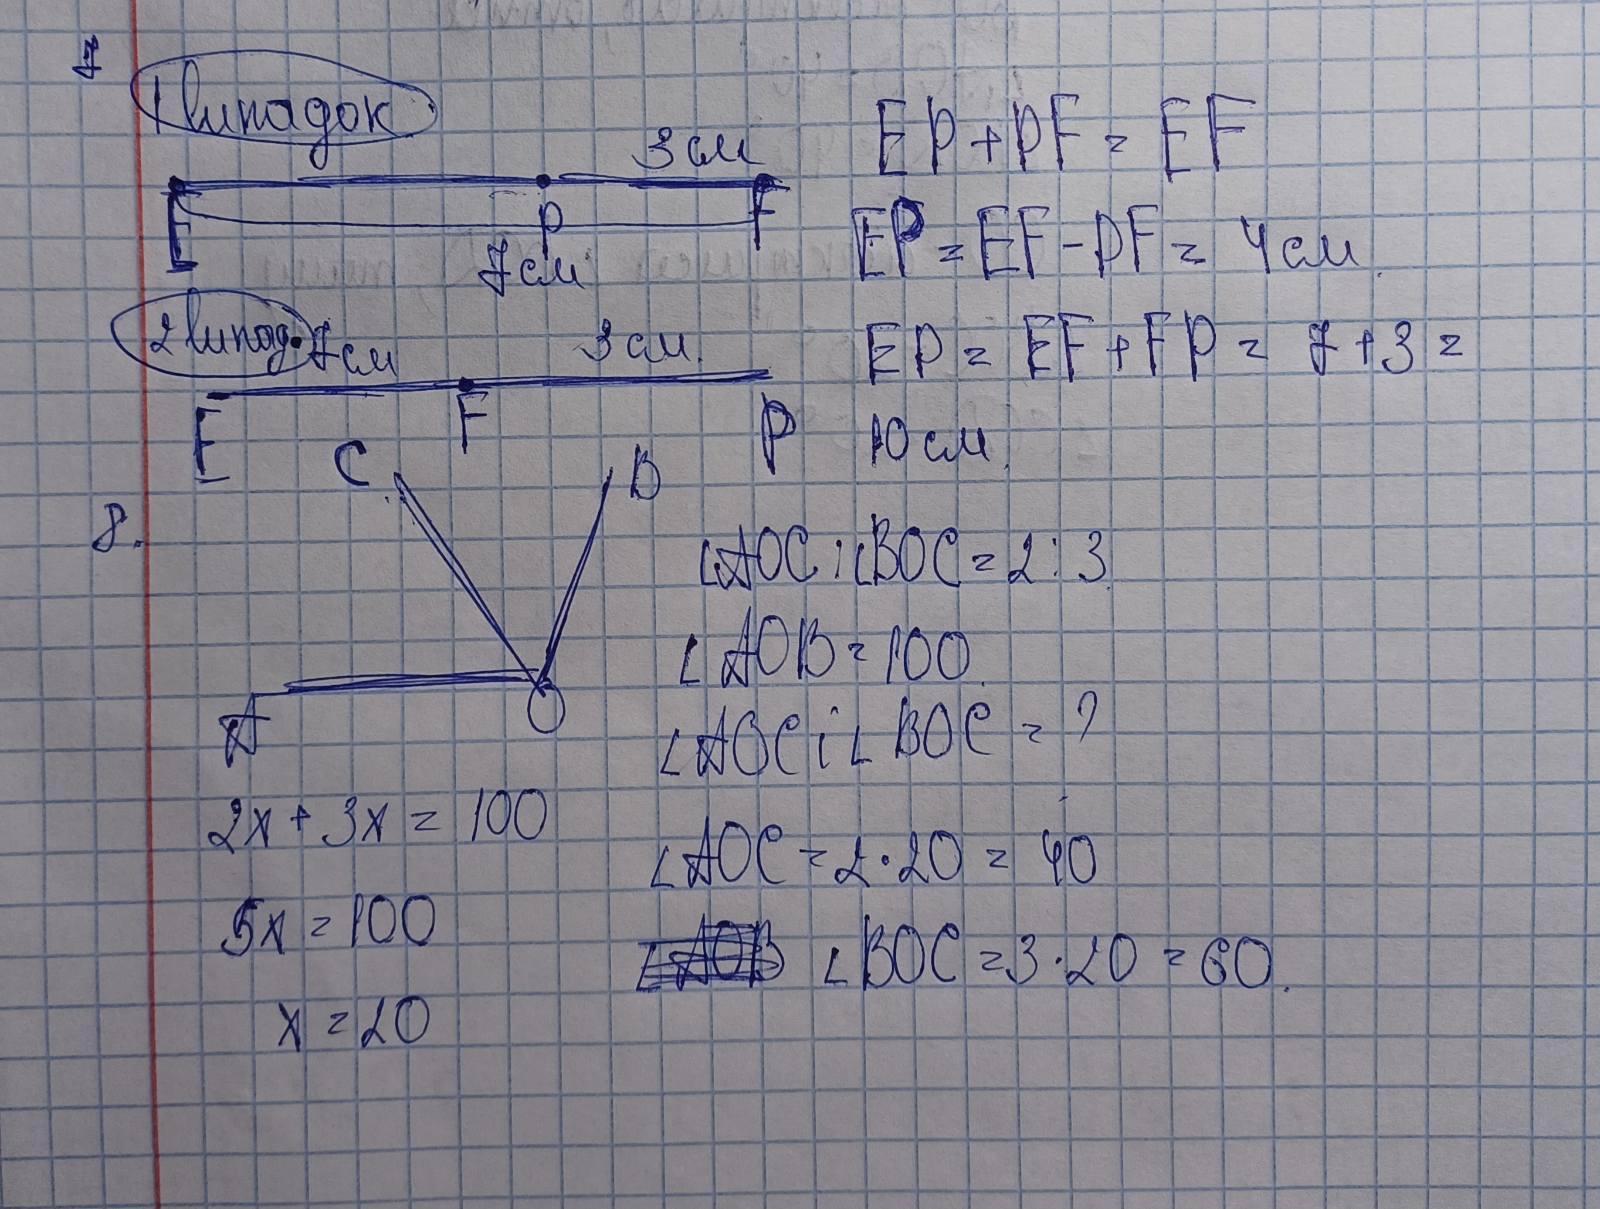 7
1 випадок
3 см
E P F
7 см
EP + PF = EF
EP = EF - PF = 4 см.
2 випад. 7 см 3 см.
E F P
EP = EF + FP = 7 + 3 =
10 см.
8.
C B
A O
∠AOC : ∠BOC = 2 : 3
∠AOB = 100.
∠AOC і ∠BOC = ?
2x + 3x = 100
5x = 100
x = 20
∠AOC = 2 · 20 = 40
∠AOB ∠BOC = 3 · 20 = 60.